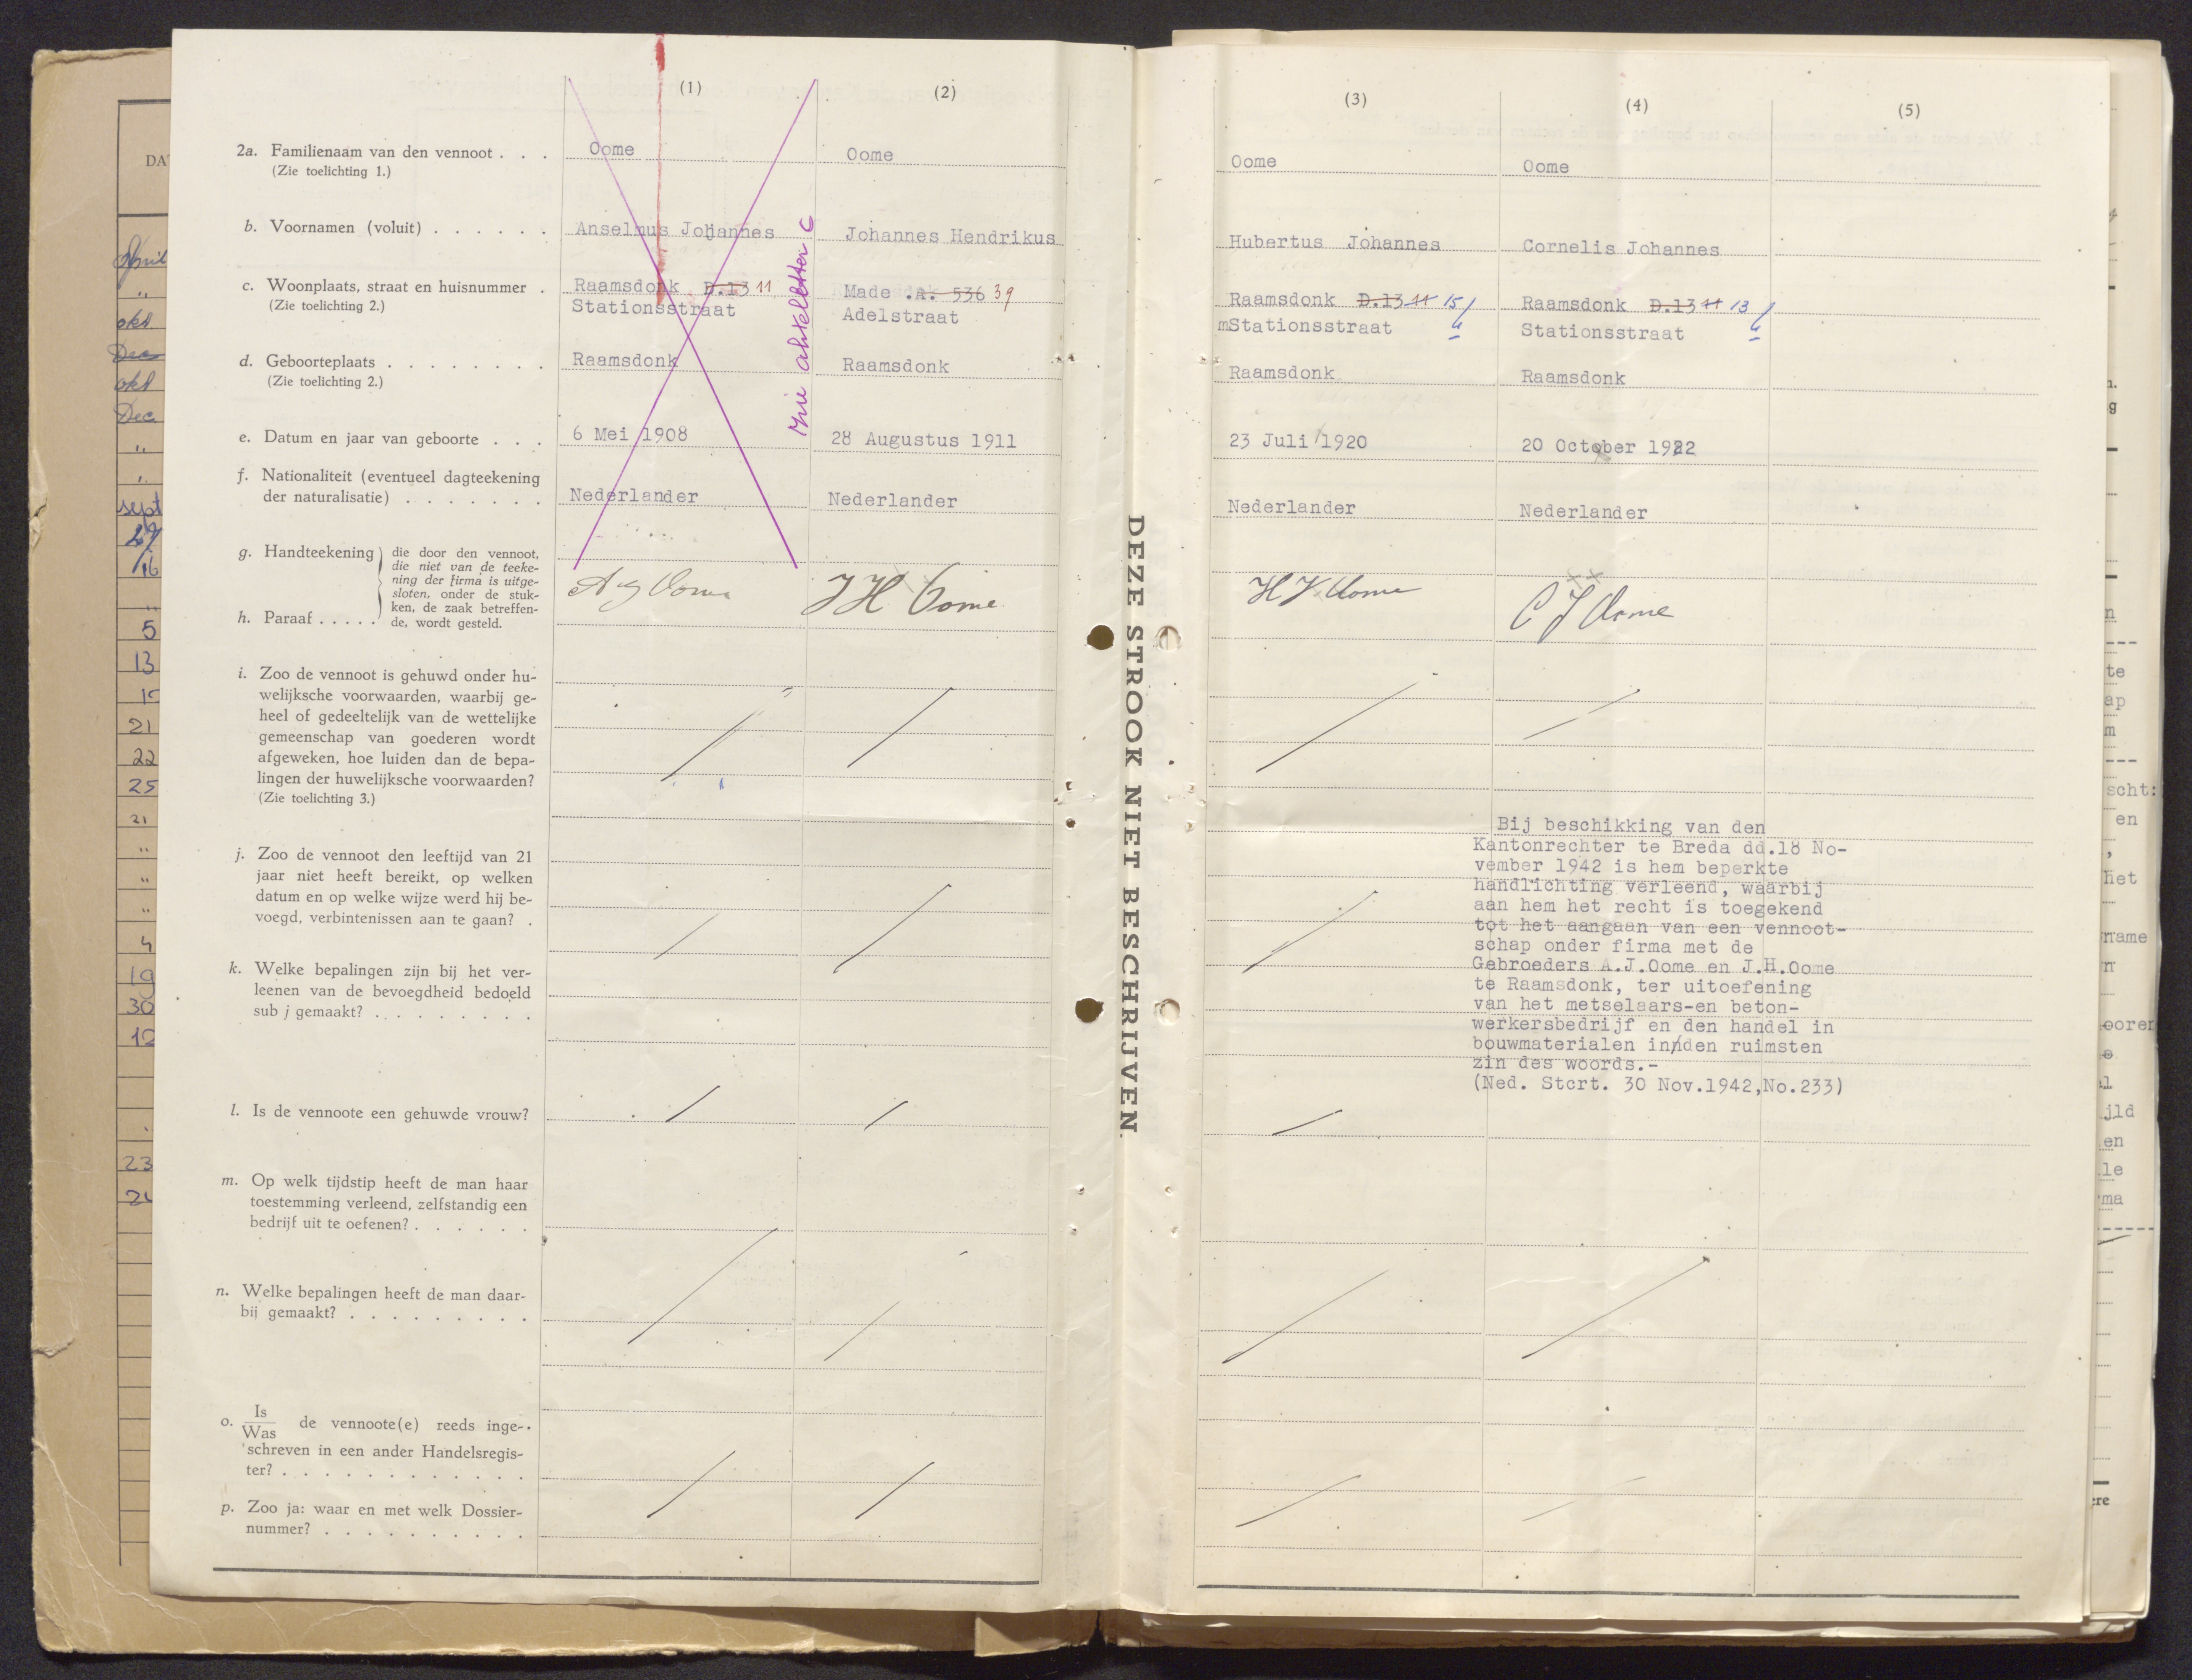 (1)
(2)
2a. Familienaam van den vennoot . . .
(Zie toelichting 1.)
Oome
Oome
b. Voornamen (voluit) . . . . . .
Anselmus Johannes
Johannes Hendrikus
c. Woonplaats, straat en huisnummer .
(Zie toelichting 2.)
Raamsdonk D.13 11
Stationsstraat
Made .A. 536 39
Adelstraat
d. Geboorteplaats . . . . . . . .
(Zie toelichting 2.)
Raamsdonk
Raamsdonk
e. Datum en jaar van geboorte . . .
6 Mei 1908
28 Augustus 1911
f. Nationaliteit (eventueel dagteekening
der naturalisatie) . . . . . . .
Nederlander
Nederlander
g. Handteekening
h. Paraaf . . . . .
die door den vennoot,
die niet van de teeke-
ning der firma is uitge-
sloten, onder de stuk-
ken, de zaak betreffen-
de, wordt gesteld.
A J Oome
J H Oome
i. Zoo de vennoot is gehuwd onder hu-
welijksche voorwaarden, waarbij ge-
heel of gedeeltelijk van de wettelijke
gemeenschap van goederen wordt
afgeweken, hoe luiden dan de bepa-
lingen der huwelijksche voorwaarden?
(Zie toelichting 3.)
j. Zoo de vennoot den leeftijd van 21
jaar niet heeft bereikt, op welken
datum en op welke wijze werd hij be-
voegd, verbintenissen aan te gaan? .
k. Welke bepalingen zijn bij het ver-
leenen van de bevoegdheid bedoeld
sub j gemaakt? . . . . . . . .
l. Is de vennoote een gehuwde vrouw?
m. Op welk tijdstip heeft de man haar
toestemming verleend, zelfstandig een
bedrijf uit te oefenen? . . . . . .
n. Welke bepalingen heeft de man daar-
bij gemaakt? . . . . . . . . .
o. Is
Was de vennoote(e) reeds inge-
schreven in een ander Handelsregis-
ter? . . . . . . . . . . . .
p. Zoo ja: waar en met welk Dossier-
nummer? . . . . . . . . . .
DEZE STROOK NIET BESCHRIJVEN.
(3)
(4)
(5)
Oome
Oome
Hubertus Johannes
Cornelis Johannes
Raamsdonk D.13 11 15
mStationsstraat
Raamsdonk D.13 11 13
Stationsstraat
Raamsdonk
Raamsdonk
23 Juli 1920
20 October 1922
Nederlander
Nederlander
H J Oome
C J Oome
Bij beschikking van den
Kantonrechter te Breda dd.18 No-
vember 1942 is hem beperkte
handlichting verleend, waarbij
aan hem het recht is toegekend
tot het aangaan van een vennoot-
schap onder firma met de
Gebroeders A.J.Oome en J.H.Oome
te Raamsdonk, ter uitoefening
van het metselaars-en beton-
werkersbedrijf en den handel in
bouwmaterialen in den ruimsten
zin des woords.-
(Ned. Stcrt. 30 Nov.1942,No.233)
DA
April
"
okt
Dec
okt
Dec
"
"
sept
5
13
21
22
25
21
"
"
"
4
19
30
23
te
ap
m
scht:
en
het
name
ooren
jld
en
le
ma